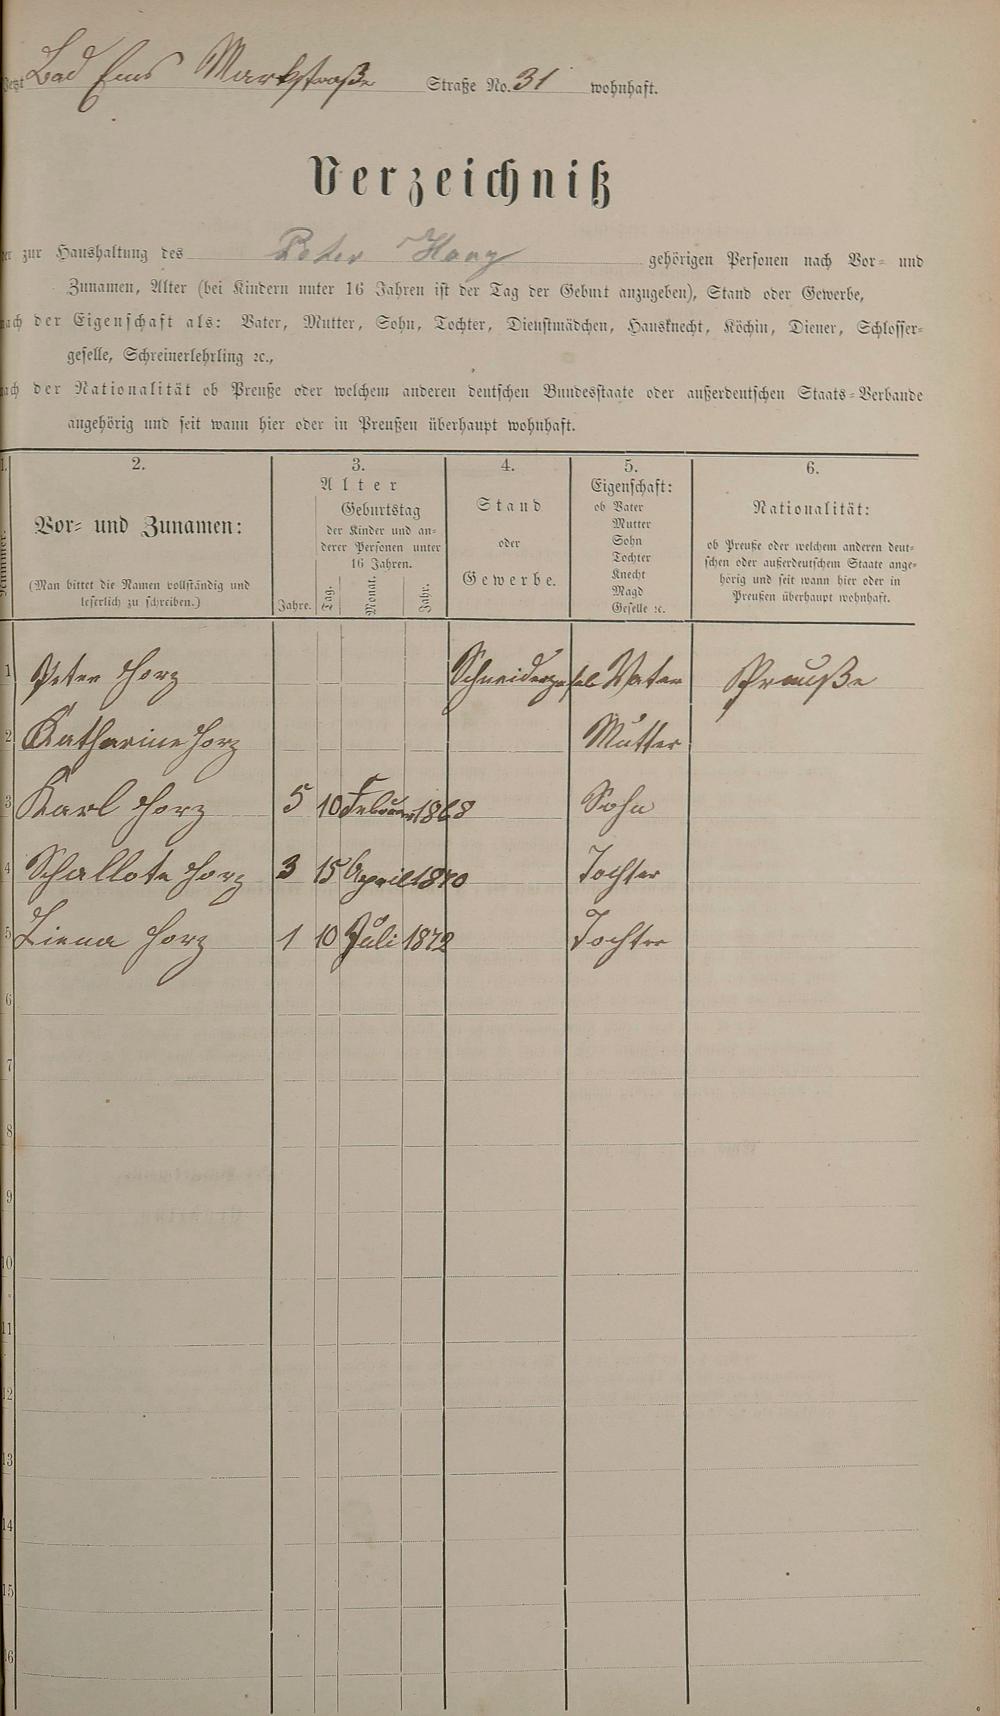 Jetzt Bad Ems Markstraße Straße No. 31 wohnhaft.
Verzeichniß
der zur Haushaltung des Peter Horz gehörigen Personen nach Vor- und
Zunamen, Alter (bei Kindern unter 16 Jahren ist der Tag der Geburt anzugeben), Stand oder Gewerbe,
nach der Eigenschaft als: Vater, Mutter, Sohn, Tochter, Dienstmädchen, Hausknecht, Köchin, Diener, Schlosser-
geselle, Schreinerlehrling ꝛc.,
nach der Nationalität ob Preuße oder welchem anderen deutschen Bundesstaate oder außerdeutschen Staats-Verbande
angehörig und seit wann hier oder in Preußen überhaupt wohnhaft.
1. 2. 3. 4. 5. 6.
Nummer.
Vor- und Zunamen:
(Man bittet die Namen vollständig und
leserlich zu schreiben.)
Alter
Jahre.
Geburtstag
der Kinder und an-
derer Personen unter
16 Jahren.
Tag. Monat. Jahr.
Stand
oder
Gewerbe.
Eigenschaft:
ob Vater
Mutter
Sohn
Tochter
Knecht
Magd
Geselle ꝛc.
Nationalität:
ob Preuße oder welchem anderen deut-
schen oder außerdeutschem Staate ange-
hörig und seit wann hier oder in
Preußen überhaupt wohnhaft.
1 Peter Horz Vater Preuße
2 Katharine Horz Mutter
3 Karl Horz 5 10 Februar 1868 Sohn
4 Schallote Horz 3 15 April 1870 Tochter
5 Liena Horz 1 10 Juli 1872 Tochter
6
7
8
9
10
11
12
13
14
15
16